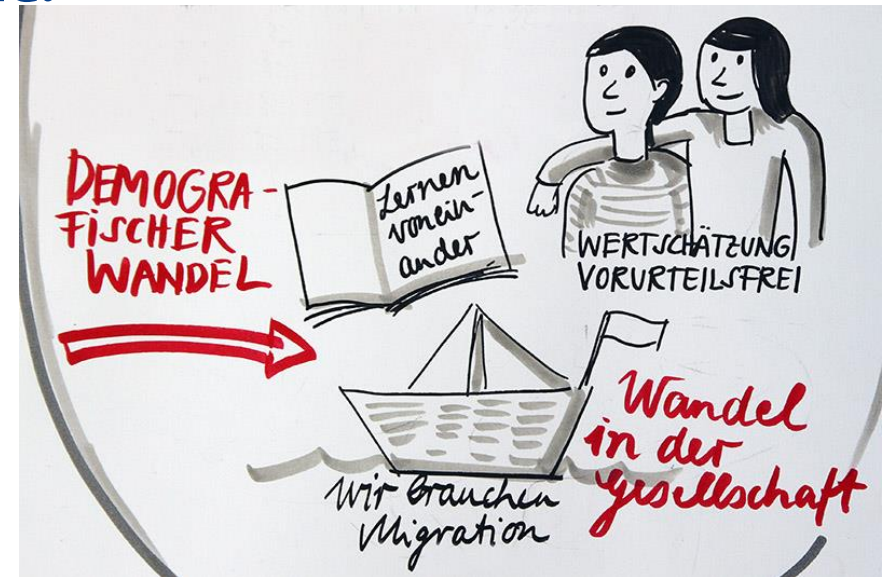 DEMOGRA-
FISCHER
WANDEL
Lernen
vonein-
ander
WERTSCHÄTZUNG
VORURTEILSFREI
Wir brauchen
Migration
Wandel
in der
Gesellschaft